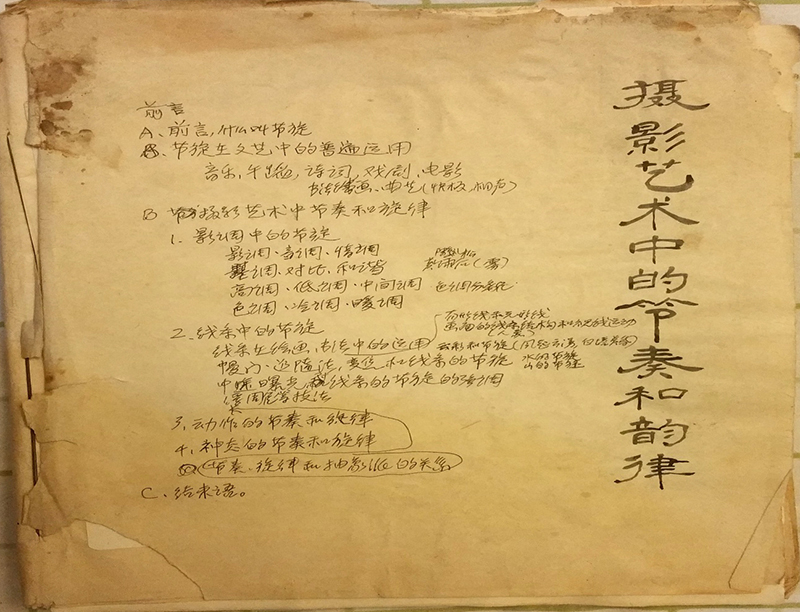 摄影艺术中的节奏和韵律
前言
A、前言,什么叫节旋
节旋在文艺中的普通运用
音乐,午蹈,诗词,戏剧,电影
书法绘画、曲艺(快板,相声)
B 摄影艺术中节奏和旋律
1. 影调中的节旋
影调、音调、情调
对比、和谐
高调、低调、中间调
色调、冷调、暖调
2. 线条中的节旋
线条在绘画、书法中的运用
慢门、追随法,变焦和线条的节旋
中曝光和线条的节旋的强调
3, 动作的节奏和旋律
4, 神态的节奏和旋律
节奏、旋律和抽象化的关系
C. 结束语。
有形线和无形线
水的节旋
山的节旋